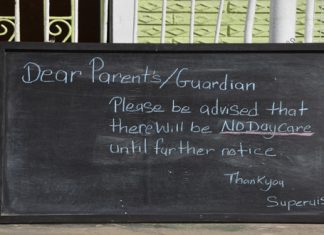 Dear Parent's/Guardian
Please be advised that
there Will be NO Daycare
until further notice
Thank you